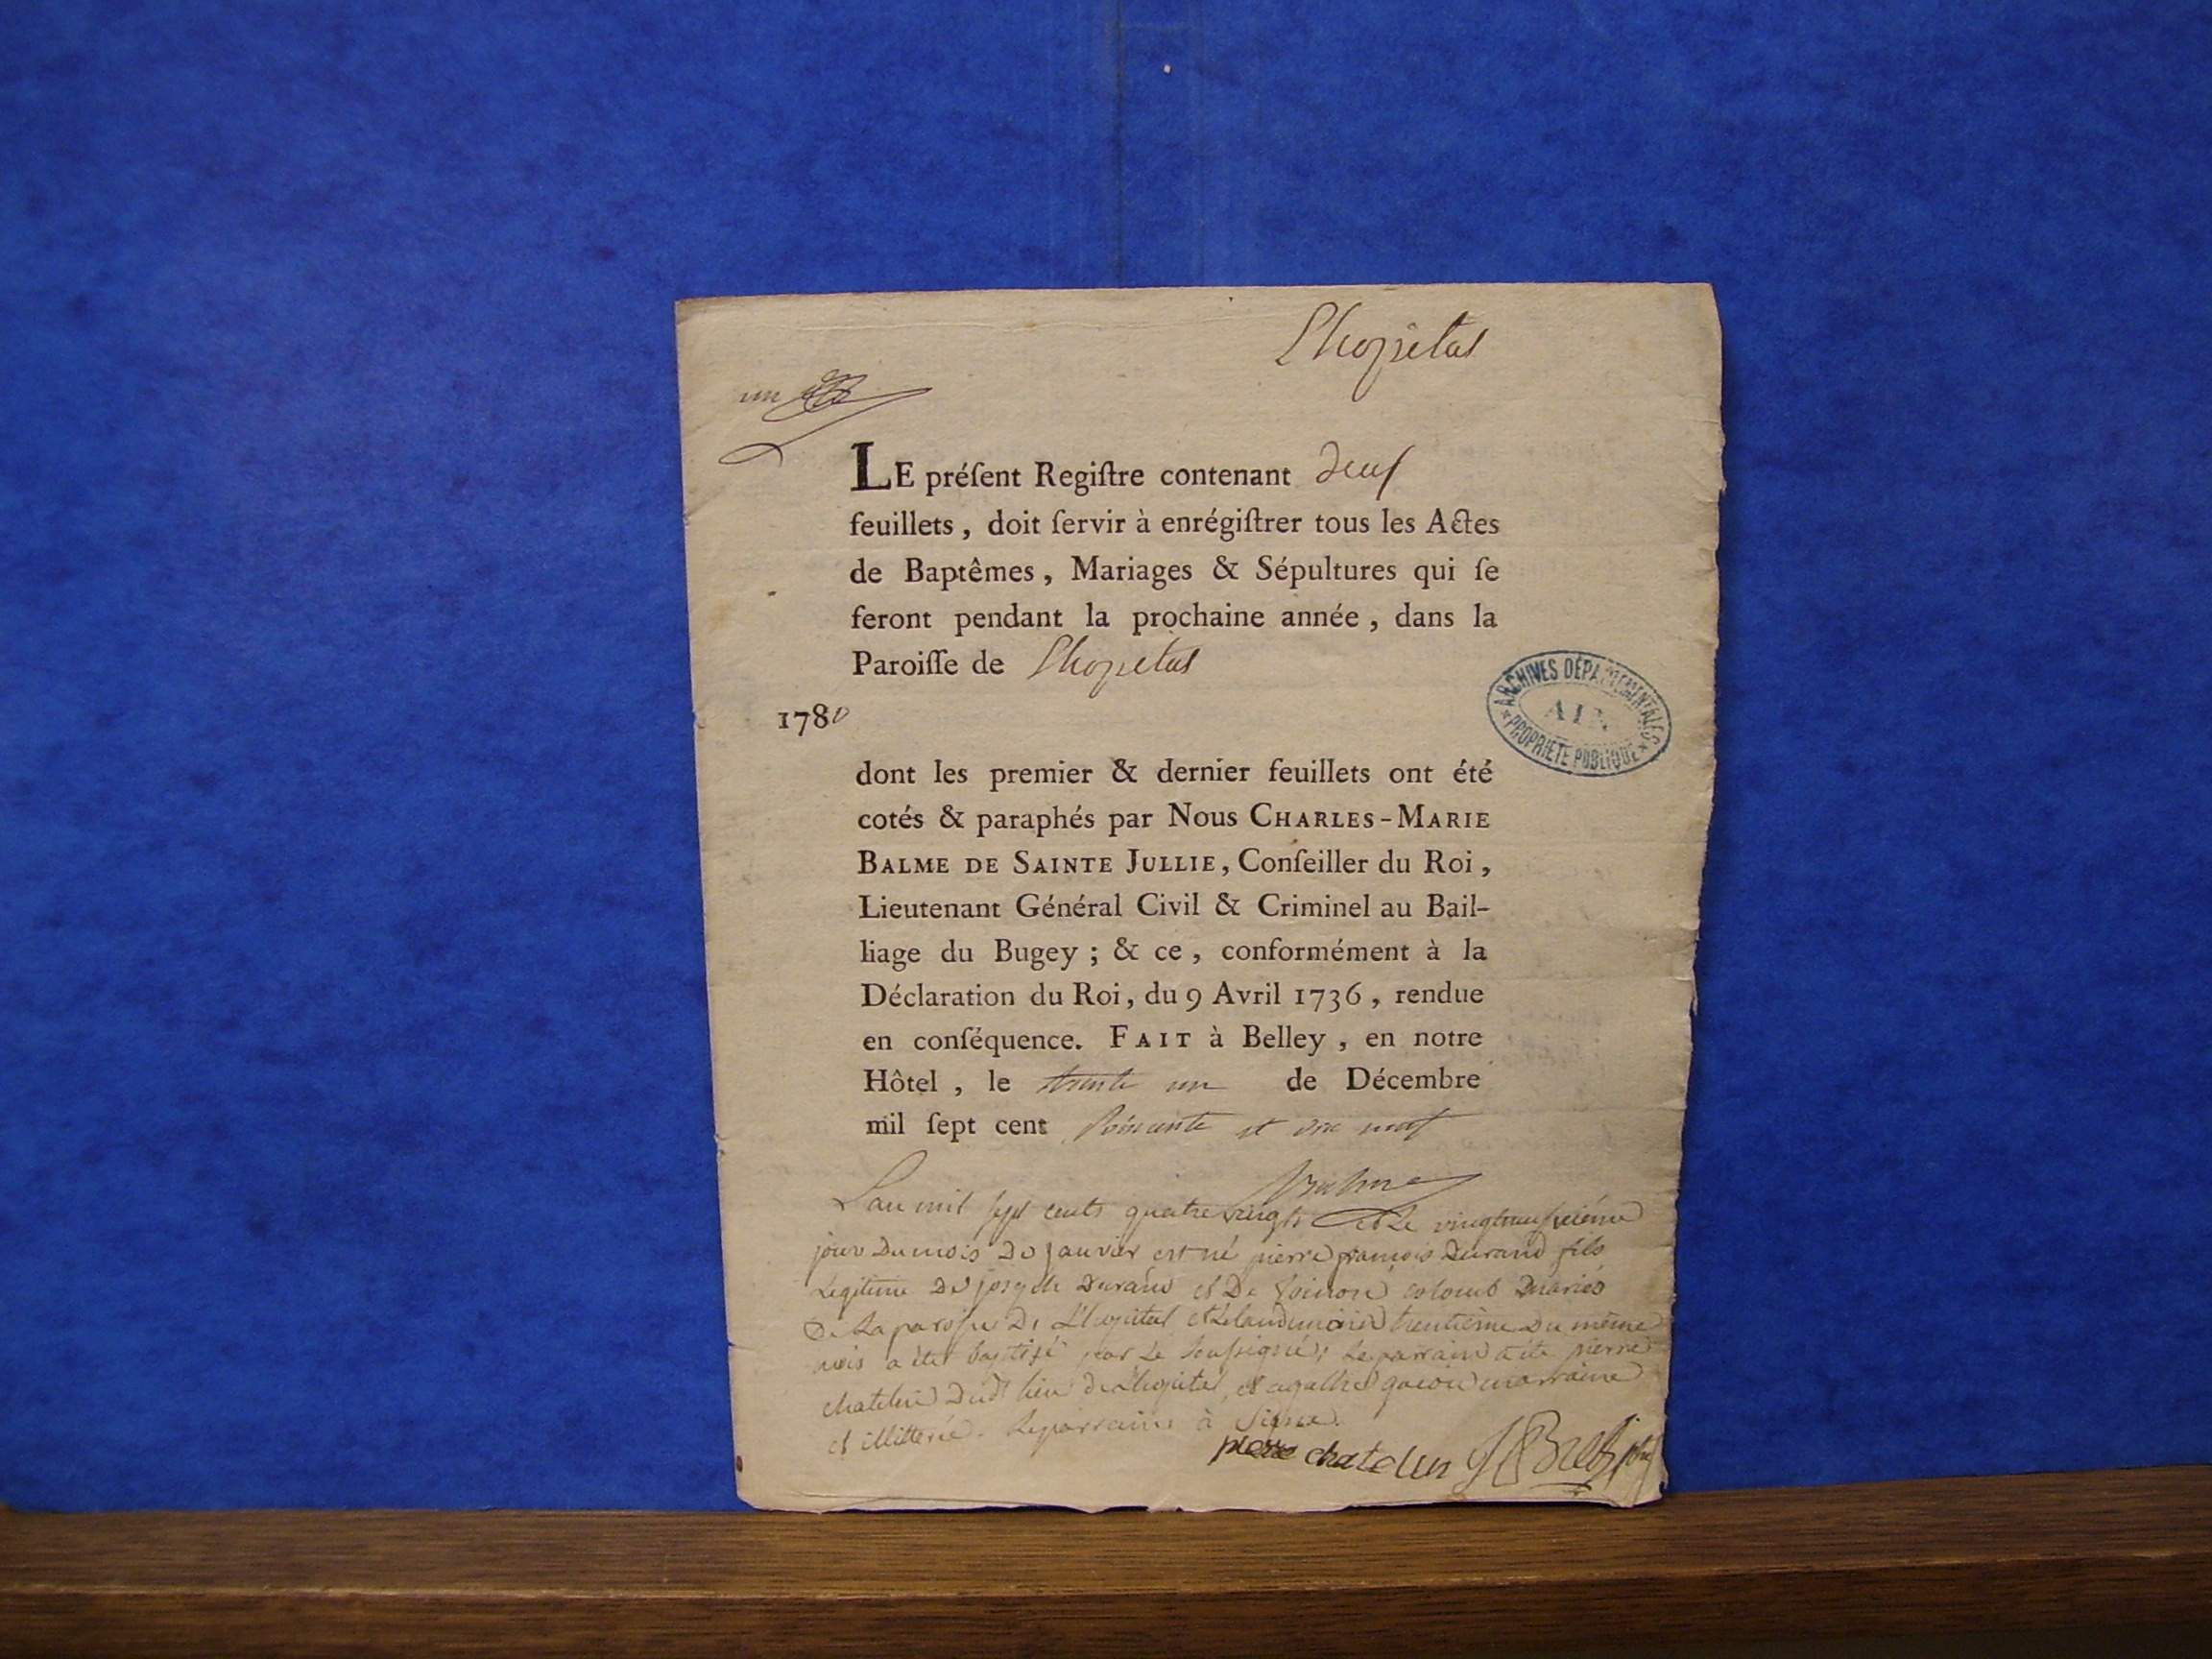 Lhopital
un
LE préſent Regiſtre contenant deux
feuillets, doit ſervir à enrégiſtrer tous les Actes
de Baptêmes, Mariages & Sépultures qui ſe
feront pendant la prochaine année, dans la
Paroiſſe de Lhopital
1780
ARCHIVES DÉPARTEMENTALES
AIN
* PROPRIÉTÉ PUBLIQUE *
dont les premier & dernier feuillets ont été
cotés & paraphés par Nous CHARLES-MARIE
BALME DE SAINTE JULLIE, Conſeiller du Roi,
Lieutenant Général Civil & Criminel au Bail-
liage du Bugey; & ce, conformément à la
Déclaration du Roi, du 9 Avril 1736, rendue
en conſéquence. FAIT à Belley, en notre
Hôtel, le trente un de Décembre
mil ſept cent soixante et dix neuf
Balme
L'an mil sept cents quatre vingts et le vingt neufvième
jour du mois de janvier est né pierre françois Durand fils
Legitime de joseph Durand et De colomb mariés
De La paroisse De L'hopital et le landemain trentième du même
mois a été baptisé par Le soussigné; le parrain a été pierre
chatelin dudt lieu de L'hopital, et agathe marraine
et illitterée. Le parrain à signé.
pierre chatelun